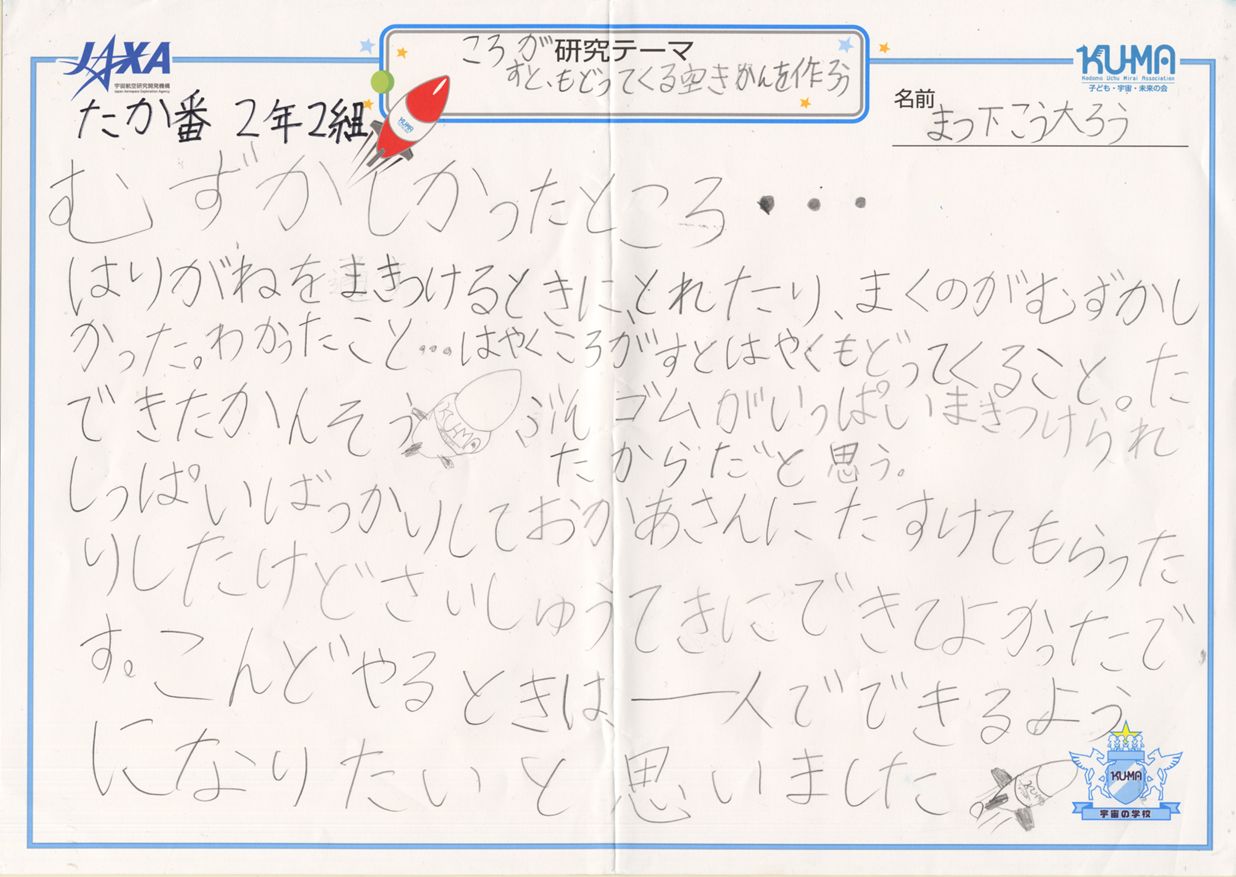 JAXA
宇宙航空研究開発機構
Japan Aerospace Exploration Agency
研究テーマ
ころが
すと、もどってくる空きかんを作ろう
KU-MA
Kodomo Uchu Mirai Association
子ども・宇宙・未来の会
たか番 2年2組
KU-MA
名前
まつ下こう大ろう
むずかしかったところ・・・
はりがねをまきつけるときに、とれたり、まくのがむずかし
かった。わかったこと…はやくころがすとはやくもどってくること。た
できたかんそう
KU-MA
ぶんゴムがいっぱいまきつけられ
たからだと思う。
しっぱいばっかりしておかあさんにたすけてもらった
りしたけどさいしゅうてきにできてよかったで
す。こんどやるときは、一人でできるよう
になりたいと思いました。
KU-MA
KU-MA
宇宙の学校